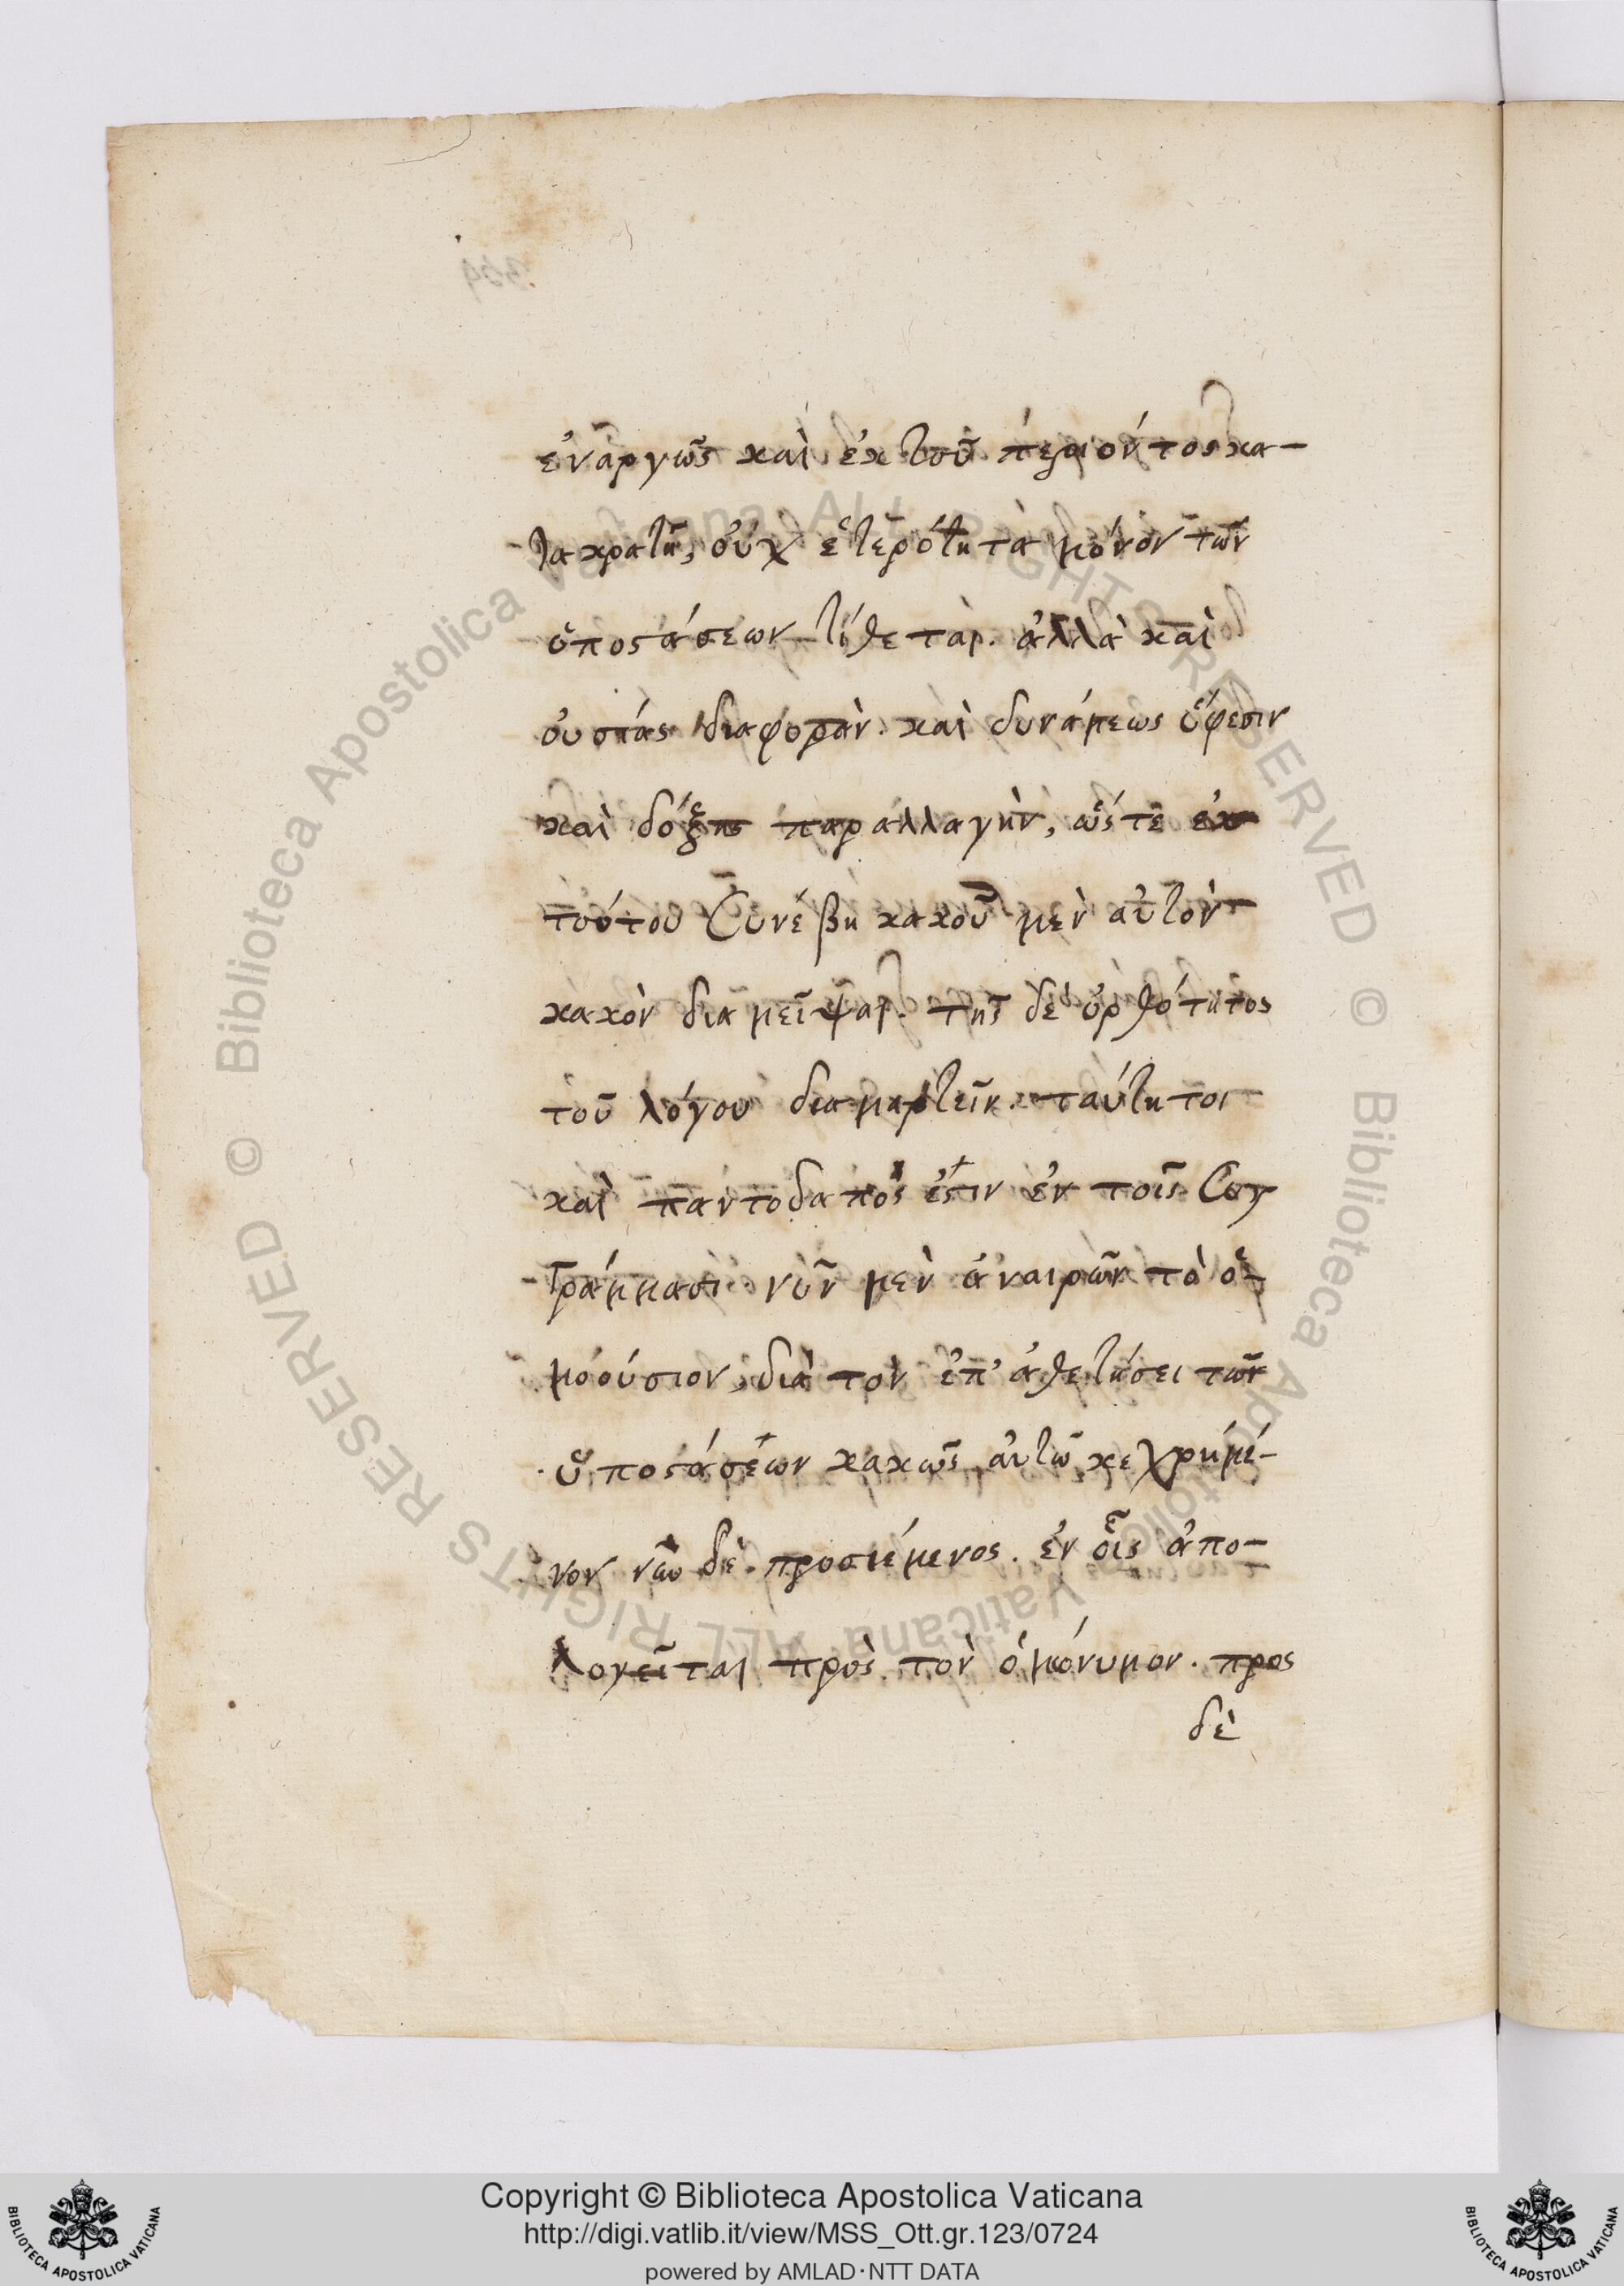 ἐναργῶς καὶ ἐκ τοῦ περιόντος κα-
τακρατῆ, οὐχ ἑτερότητα μόνον τῶν
ὑποστάσεων τίθεται. ἀλλὰ καὶ
οὐσίας διαφορὰν. καὶ δυνάμεως ὕφεσιν
καὶ δόξης παραλλαγὴν, ὥστε ἐκ
τούτου συνέβη κακοῦ μὲν αὐτὸν
κακὸν διαμεῖψαι. τῆς δὲ ὀρθότητος
τοῦ λόγου διαμαρτεῖν. ταύτη τοι
καὶ παντοδαπός ἐστιν ἐν τοῖς συγ
γράμμασι. νῦν μὲν ἀναιρῶν τὸ ὁ-
μοούσιον, διὰ τὸν ἐπ' ἀθετήσει τῶν
ὑποστάσεων κακῶς αὐτῶ κεχρημέ-
νον νῦν δὲ προσιέμενος. ἐν οἷς ἀπο-
λογεῖται πρὸς τὸν ὁμώνυμον. προς
δὲ
359
Copyright © Biblioteca Apostolica Vaticana
http://digi.vatlib.it/view/MSS_Ott.gr.123/0724
powered by AMLAD·NTT DATA
BIBLIOTECA APOSTOLICA VATICANA
BIBLIOTECA APOSTOLICA VATICANA
© Biblioteca Apostolica Vaticana ALL RIGHTS RESERVED
© Biblioteca Apostolica Vaticana ALL RIGHTS RESERVED